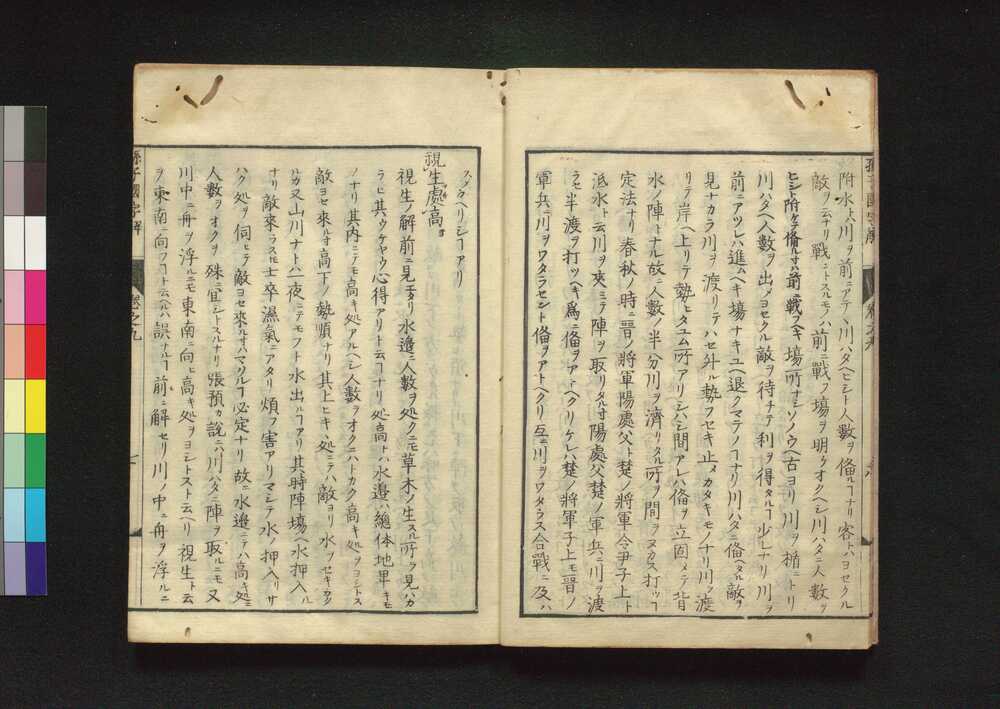 附水トハ川ヲ前ニアテヽ川ハタヘヒシト人数ヲ備ルヿナリ客トハヨセクル
敵ヲ云ナリ戦ニトスルモノハ前ニ戦フ場ヲ明ケオクヘシ川ハタニ人数ヲ
ヒシト附ケテ備ルオハ前ニ戦フヘキ場所ナシソノウヘ古ヨリ川ヲ楯ニトリ
川ハタヘ人数ヲ出メヨセクル敵ヲ待チテ利ヲ得タルヿ少レナリ川ヲ
前ニアツレハ進ムヘキ場ナキユヘ退クマテノヿナリ川ハタニ備ヘタル敵ヲ
見ナカラ川ヲ渡リテハセ外ル勢フセキ止メカタキモノナリ川ヲ渡
リテ岸ヘ上リテ勢ヒタユム所アリシハシ間アレハ備ヲ立固メテ背
水ノ陣トナル故ニ人数ノ半分川ヲ濟リタル所ヲ間ヲヌカス打ツヿ
定法ナリ春秋ノ時ニ晋ノ将軍陽處父ト楚ノ将軍令尹子上ト
泜水ト云川ヲ夾ミテ陣ヲ取リタルオ陽處父楚ノ軍兵ニ川ヲ渡
ラセ半渡ヲ打ツヘキ為ニ備ヲアトヘクリケレハ楚ノ将軍子上モ晋ノ
軍兵ニ川ヲワタラセント備ヲアトヘクリ互ニ川ヲワタラス合戦ニ及ハ
スメカヘリシヿアリ
視生處高
視生ノ解前ニ見エタリ水邉ニ人数ヲ処クニモ草木ノ生スル所ヲ見ハカ
ラヒ其ウケヤウ心得アリト云ヿナリ処高トハ水邉ハ總体地卑キモ
ノナリ其内ニテモ高キ処アルヘシ人数ヲオクニハトカク高キ処ヲヨシトス
敵ヨセ來ルオ高下ノ勢順ナリ其上ヒキヽ処ニテハ敵ヨリ水ヲセキカク
ルカ又山川ナトハ一夜ニテモフト水出ルヿアリ其時陣塲ヘ水押入ル
ナリ敵來ラスル士卒濕氣ニアタリ煩フ害アリマシテ水ノ押入リサ
ハク処ヲ伺ヒテ敵ヨセ來ルオハマクルヿ必定ナリ故ニ水邉ニテハ高キ処ニ
人数ヲオクヲ殊ニ宜シトスルナリ張預カ説ニハ川ハタニ陣ヲ取ルニモ又
川中ニ舟ヲ浮ルニモ東南ニ向ヒ高キ処ヲヨシトスト云ヘリ視生ト云
ヲ東南ニ向フヿト云ヘルハ誤ナルヿ前ニ解セリ川ノ中ニ舟ヲ浮ルニ
孫子國字解
巻之九